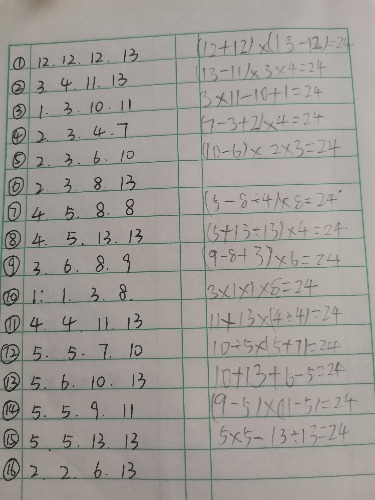 ① 12. 12. 12. 13 (12+12)×(13-12)=24
② 3. 4. 11. 13 (13-11)×3×4=24
③ 1. 3. 10. 11 3×11-10+1=24
④ 2. 3. 4. 7 (7-3+2)×4=24
⑤ 2. 3. 6. 10 (10-6)×2×3=24
⑥ 2. 3. 8. 13
⑦ 4. 5. 8. 8 (5-8÷4)×8=24
⑧ 4. 5. 13. 13 (5+13÷13)×4=24
⑨ 3. 6. 8. 9 (9-8+3)×6=24
⑩ 1. 1. 3. 8. 3×1×1×8=24
⑪ 4. 4. 11. 13 11+13×(4÷4)=24
⑫ 5. 5. 7. 10 10÷5×(5+7)=24
⑬ 5. 6. 10. 13 10+13+6-5=24
⑭ 5. 5. 9. 11 (9-5)×(11-5)=24
⑮ 5. 5. 13. 13 5×5-13÷13=24
⑯ 2. 2. 6. 13